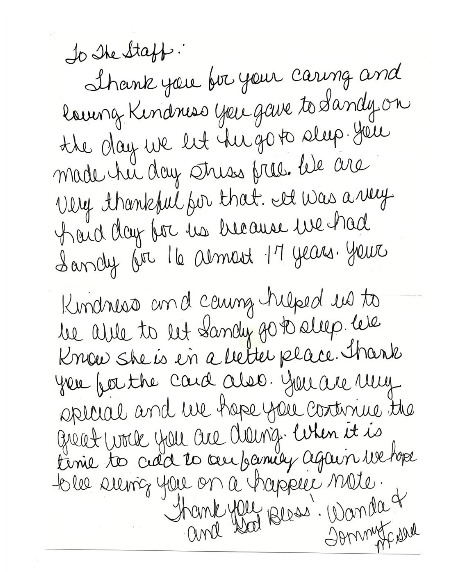 To The Staff:
Thank you for your caring and
loving Kindness you gave to Sandy on
the day we let her go to sleep. You
made her day stress free. We are
very thankful for that. It was a very
hard day for us because we had
Sandy for 16 almost 17 years. Your
Kindness and caring helped us to
be able to let Sandy go to sleep. We
Know she is in a better place. Thank
you for the card also. You are very
special and we hope you continue the
great work you are doing. When it is
time to add to our family again we hope
to be seeing you on a happier note.
Thank you
and God Bless! Wanda &
Tommy